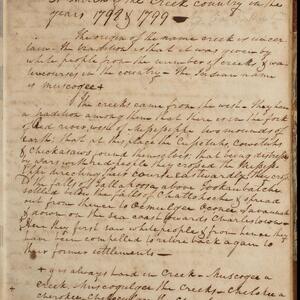 A sketch of the Creek country in the
years 1798 & 1799 —
The origin of the name creek is uncer
tain. the tradition is that it was given by
white people from the number of creeks & wa
tercourses in the country — the Indian name
is muscogee +
The creeks came from the west — They have
a tradition among them that there is in the fork
of Red river, west of Mississippi two mounds of
earth; that at this place the Cussetuhs, Cowetuhs
& Chickasaws found themselves; that being distressed
by wars with red people they crossed the Missis-
sippi directing their course eastwardly they
the falls of Tallapoosa above Tookaubatche
settled below the falls of Chattahoche & spread
out from thence to Ocmulgee Oconee Savannah
& down on the sea coast towards Charlestown
Here they first saw white people & from hence they
have been compelled to retire back again to
their former settlements —
+ g is always hard in Creek — Muscogee a
creek, Muscogulgee the Creeks — Chelokee a
cherokee